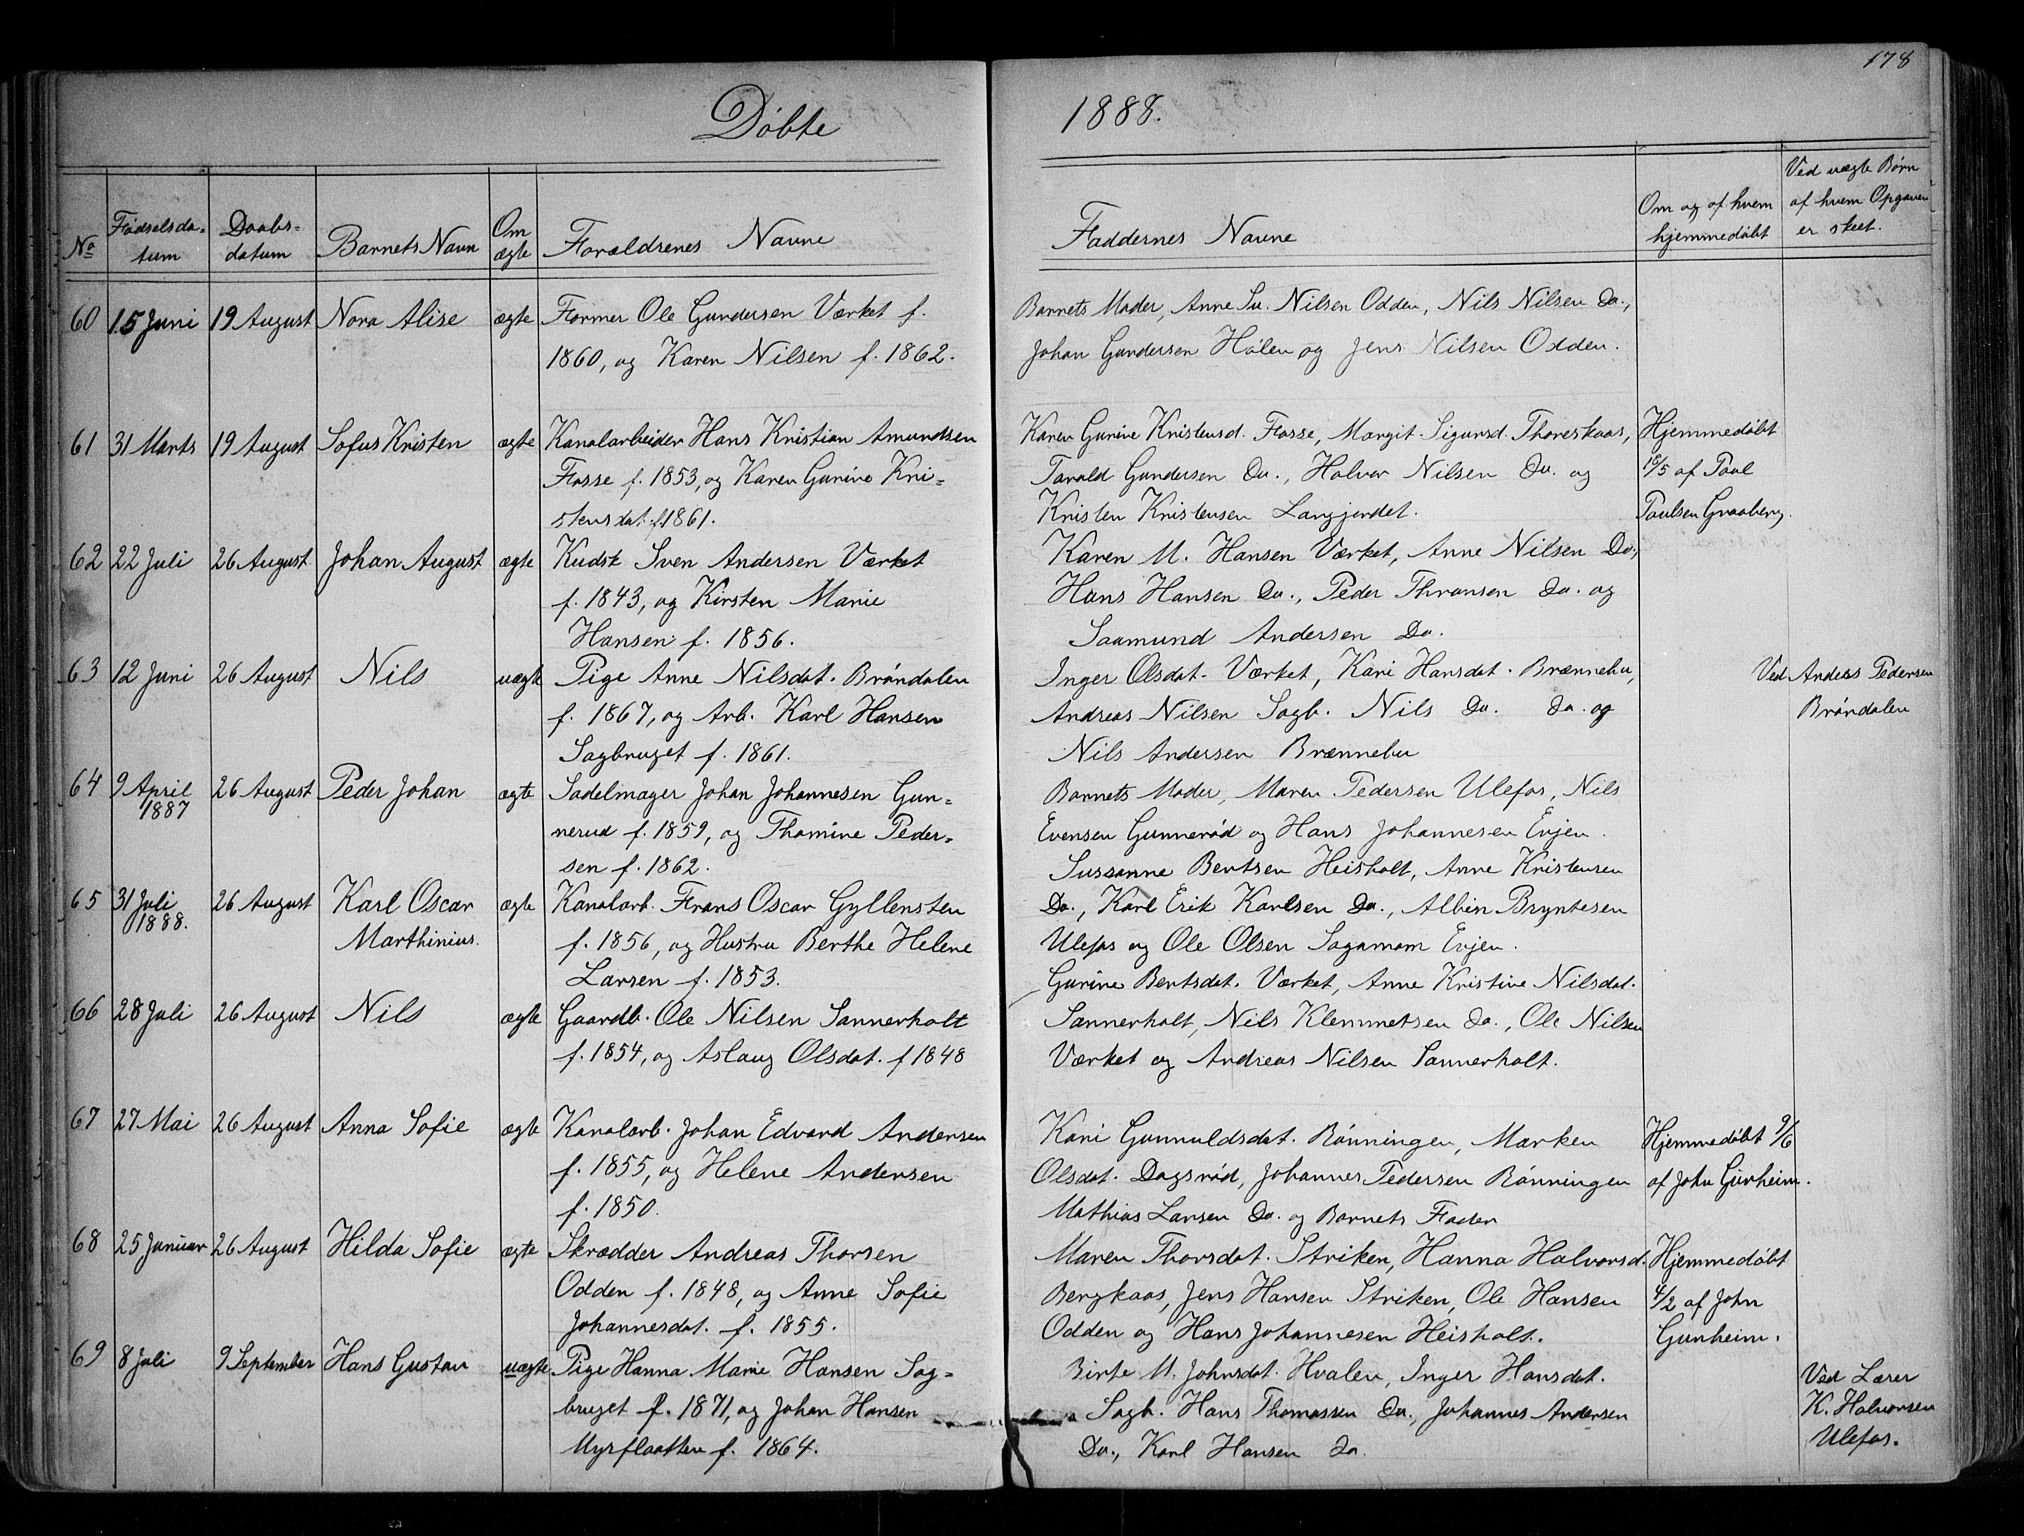 178
Døbte 1888.
No
Fødselsda-
tum
Daabs-
datum
Barnets Navn
Om
ægte
Forældrenes Navne
Faddernes Navne
Om og af hvem
hjemmedøbt
Ved uægte Børn
af hvem Opgaven
er skeet.
60 15 Juni 19 August Nora Alise ægte Former Ole Gundersen Værket f. Barnets Moder, Anne Su. Nilsen Odden, Nils Nilsen Do.,
1860, og Karen Nilsen f. 1862. Johan Gundersen Holen og Jens Nilsen Odden.
61 31 Marts 19 August Sofus Kristen ægte Kanalarbeider Hans Kristian Amundsen Karen Gurine Kristensd. Fosse, Margit Sigursd. Thoreskaas, Hjemmedøbt
Fosse f. 1853, og Karen Gurine Kri- Tarald Gundersen Do., Halvor Nilsen Do. og af Paul
stensdat. f. 1861. Kristen Kristensen Langjordet. Paulsen Graaberg.
62 22 Juli 26 August Johan August ægte Kudsk Sven Andersen Værket Karen M. Hansen Værket, Anne Nilsen Do.,
f. 1843, og Kirsten Marie Hans Hansen Do., Peder Thronsen Do. og
Hansen f. 1856. Saamund Andersen Do.
63 12 Juni 26 August Nils uægte Pige Anne Nilsdat. Brøndalen Inger Olsdat. Værket, Kari Hansdat. Brænnebu, Ved Anders Pedersen
f. 1867, og Arb. Karl Hansen Andreas Nilsen Sagb. Nils Do. Do. og Brøndalen
Sagbruget f. 1861. Nils Andersen Brænnebu
64 9 April 26 August Peder Johan ægte Sadelmager Johan Johannesen Gun- Barnets Moder, Maren Pedersen Ulefos, Nils
1887 nerud f. 1859, og Thomine Peder- Evensen Gunnerød og Hans Johannesen Evjen.
sen f. 1862. Sussanne Bentsen Heisholt, Anne Kristensen
65 31 Juli 26 August Karl Oscar ægte Kanalarb. Frans Oscar Gyllensten Do., Karl Erik Karlsen Do., Albin Bryntesen
1888. Marthinius. f. 1856, og Hustru Berthe Helene Ulefos og Ole Olsen Sagamom Evjen.
Larsen f. 1853. Gurine Bentsdat. Værket, Anne Kristine Nilsdat.
66 28 Juli 26 August Nils ægte Gaardb. Ole Nilsen Sannerholt Sannerholt, Nils Klemmetsen Do., Ole Nilsen
f. 1854, og Aslaug Olsdat. f 1848 Værket og Andreas Nilsen Sannerholt.
67 27 Mai 26 August Anna Sofie ægte Kanalarb. Johan Edvard Andersen Kari Gunnuldsdat. Rønningen, Marken Hjemmedøbt 9/6
f. 1855, og Helene Andersen Olsdat. Dagsrød, Johannes Pedersen Rønningen af John Gunheim.
f. 1850. Mathias Larsen Do. og Barnets Fader
68 25 Januar 26 August Hilda Sofie ægte Skrædder Andreas Thorsen Maren Thorsdat. Striken, Hanna Halvorsd. Hjemmedøbt
Odden f. 1848, og Anne Sofie Bergkaas, Jens Hansen Striken, Ole Hansen af John
Johannesdat. f. 1855. Odden og Hans Johannesen Heisholt. Gunheim.
69 8 Juli 9 September Hans Gustav uægte Pige Hanna Marie Hansen Sag- Birte M. Johnsdat. Hvalen, Inger Hansdat. Ved Lærer
bruget f. 1871, og Johan Hansen Sagb. Hans Thomassen Do., Johannes Andersen K. Halvorsen
Myrflaatten f. 1864. Do., Karl Hansen Do Ulefos.